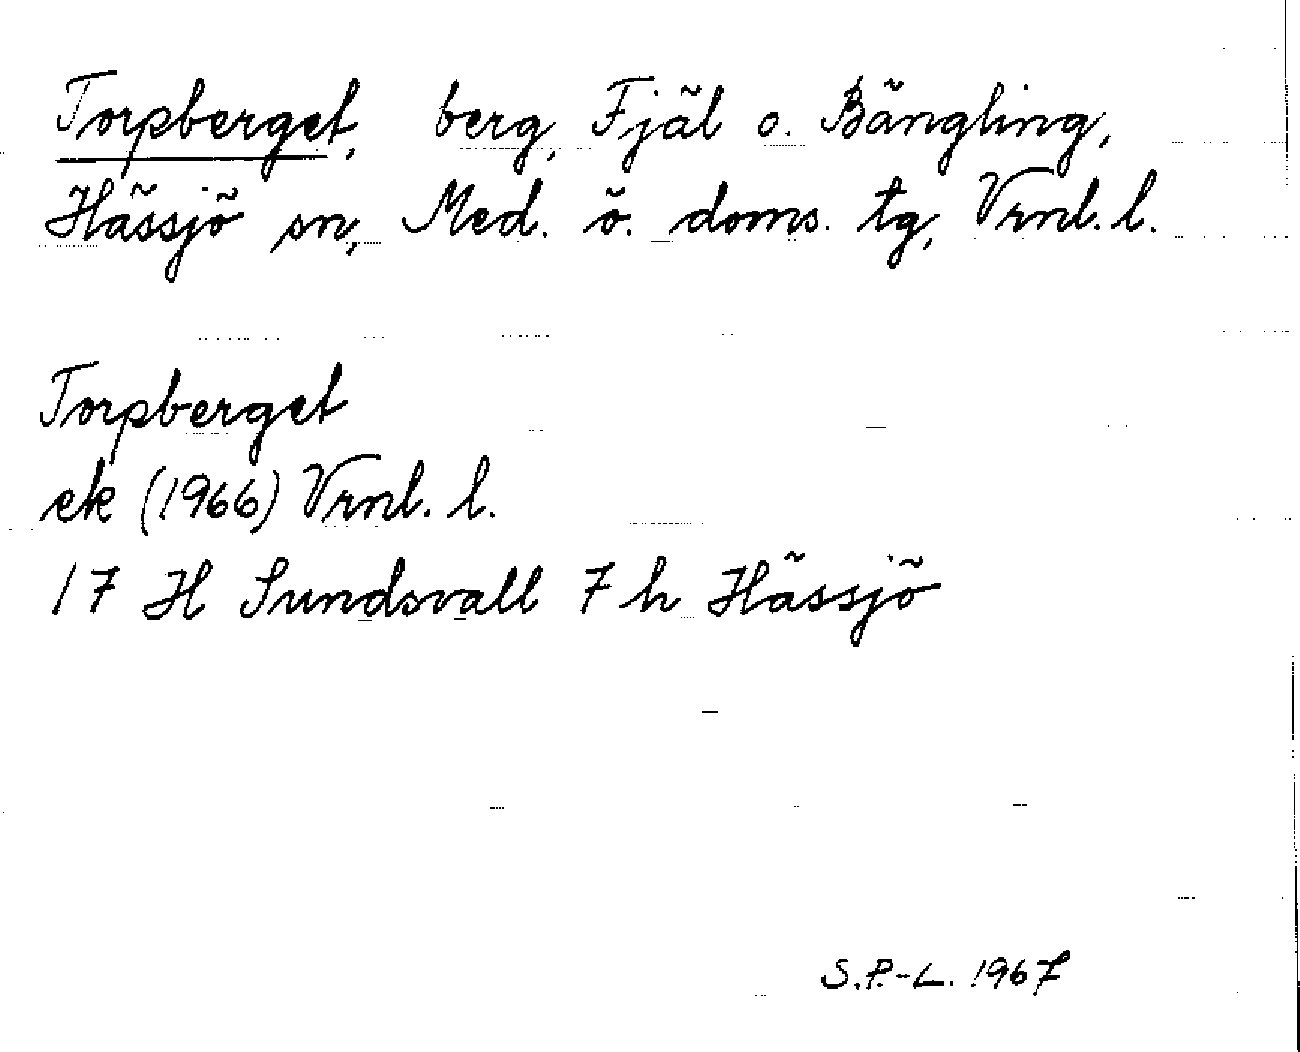 Torpberget, berg, Fjäl o. Bängling,
Hässjö sn, Med. ö. doms. tg, Vrnl. l.
Torpberget
ek (1966) Vrnl. l.
17 H Sundsvall 7 h Hässjö
S.P.-L. 1967